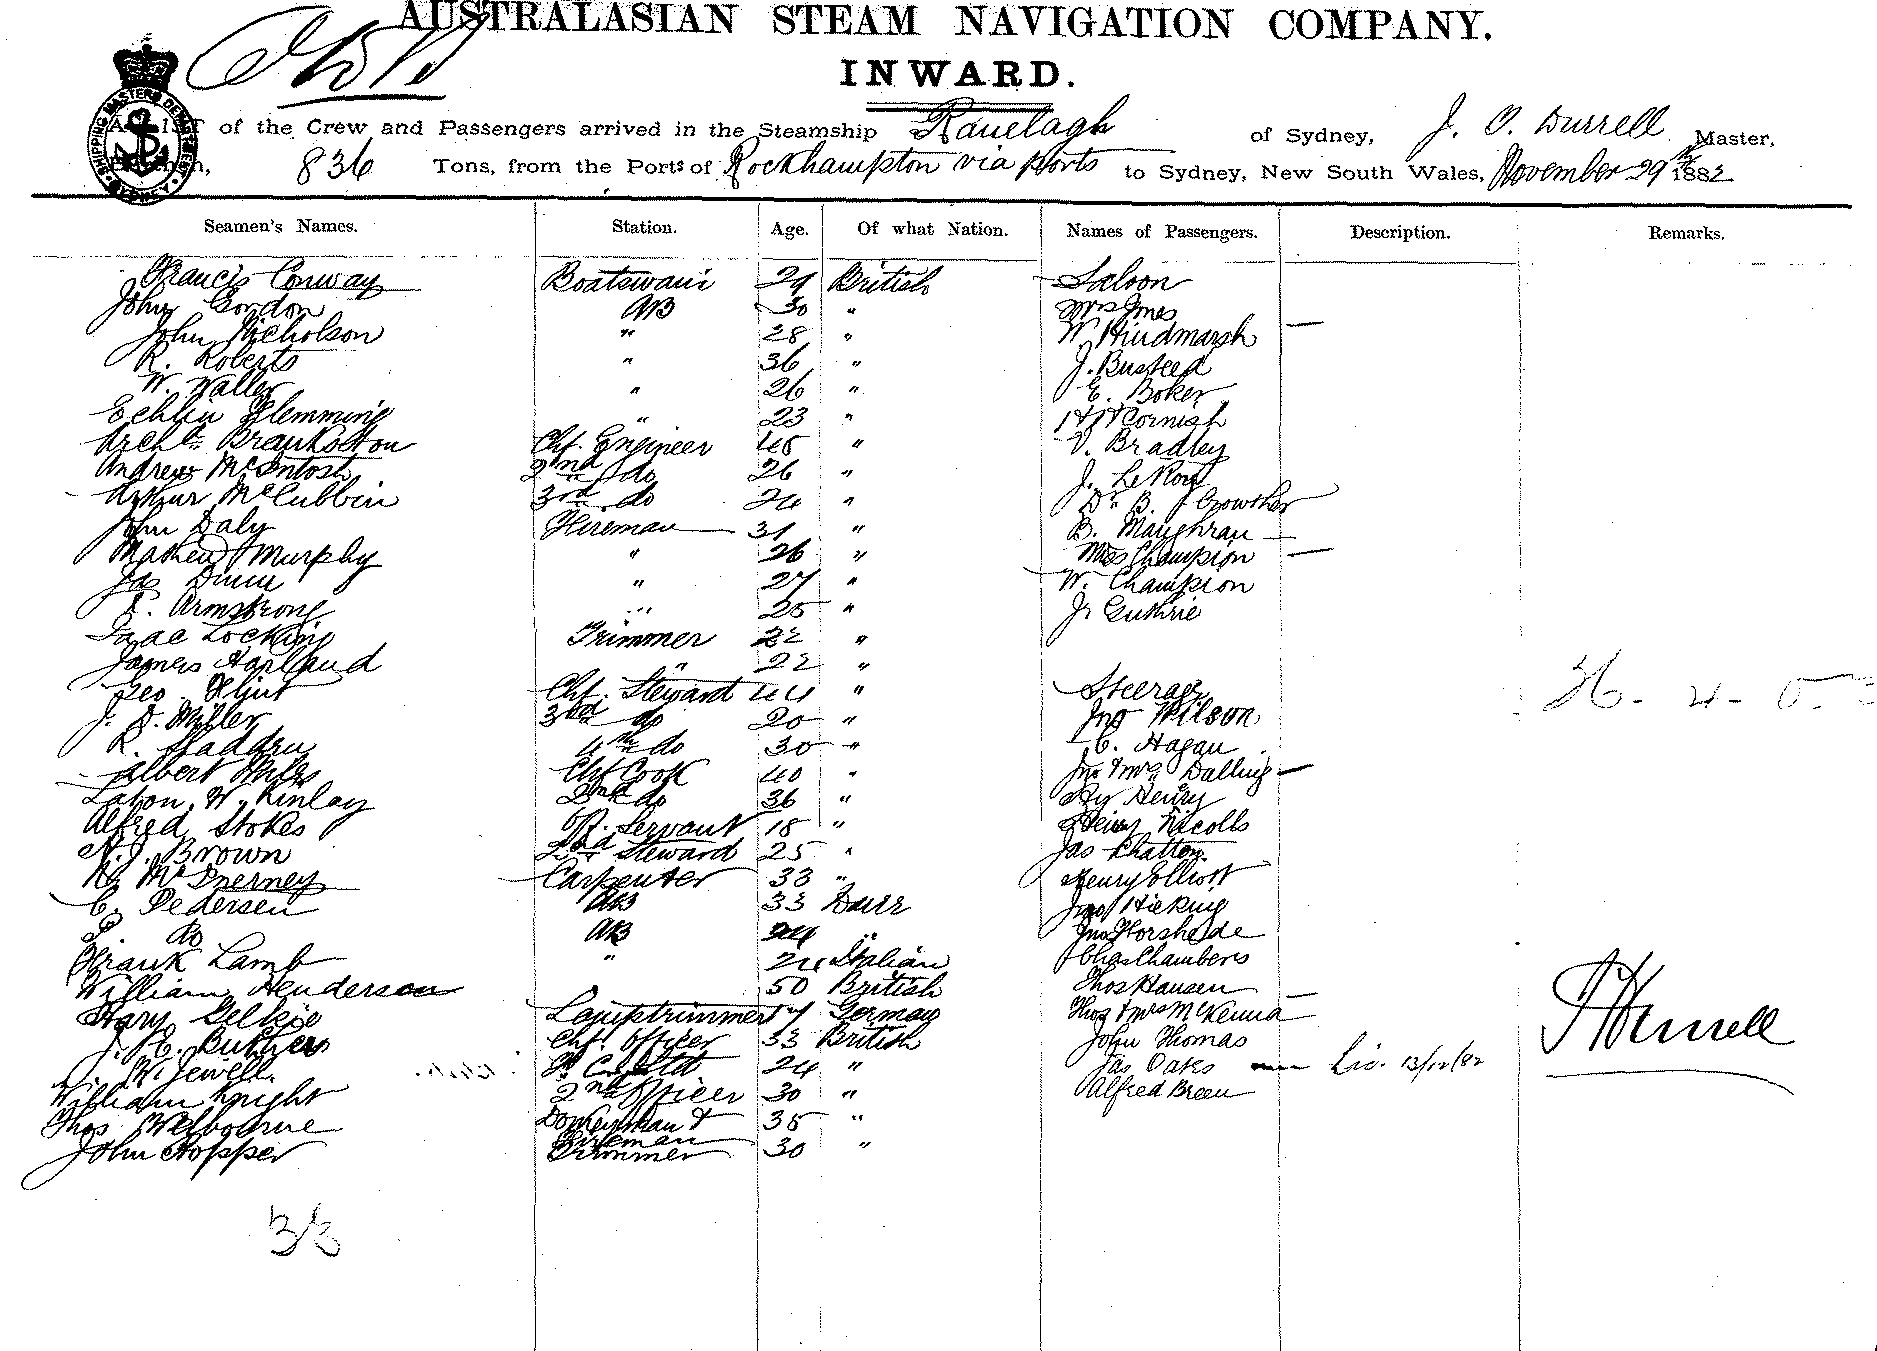 AUSTRALASIAN STEAM NAVIGATION COMPANY.
INWARD.
of the Crew and Passengers arrived in the Steamship Ranelagh of Sydney, J. O. Durrell Master,
836 Tons, from the Ports of Rockhampton via ports to Sydney, New South Wales, November 29th 1882
Seamen's Names. Station. Age. Of what Nation. Names of Passengers. Description. Remarks.
Francis Conway Boatswain 29 British Saloon
John Gordon AB 30 " Mrs Jones
John Nicholson " 28 " W Hindmarsh —
R. Roberts " 36 " J. Busteed
W. Waller " 26 " E. Boker
Echlin Flemming " 23 " Cornish
Archd. Chf. Engineer 45 " V. Bradley
Andrew McIntosh 2nd do 26 " J. LeRoy
Arthur McCubbin 3rd do 24 " Dr B. J Crowther
John Daly Fireman 31 " B. Maughran
Mathew Murphy " 26 " Champion —
Jas Dunn " 27 " W. Champion
R. Armstrong " 25 " J. Guthrie
Isaac Locking Trimmer 22 "
James Harland " 22 "
Geo. Flint Chf. Steward 44 " Steerage
J. D. Miller 3rd do 20 " Jno Wilson
R. 4th do 30 " C. Hagan
Albert Chf Cook 40 " Jno & Mrs Dalling —
W. Kinlay 2nd do 36 " Hy Henry
Alfred Stokes Servant 18 " Henry Nicolls
A. J. Brown 2nd Steward 25 " Jas Chatton
McInerney Carpenter 33 " Henry Elliott
C. Pedersen AB 33 Dane Jno Hicking
P. do AB 24 " Jno
Frank Lamb " 24 Italian Chas Chambers
William Henderson 50 British Thos Hansen
Harry Gelkie Lamptrimmer German Thos & Mrs McKenna
J. H. Chf. Officer 33 British John Thomas
W. Jewell 24 " Jas Oaks Liv. 13/12/82
William Knight 2nd Officer 30 " Alfred Breen
Thos Melbourne Donkeyman & Fireman 35 "
John Hopper Trimmer 30 "
36 - 4 - 0
J Durrell
33